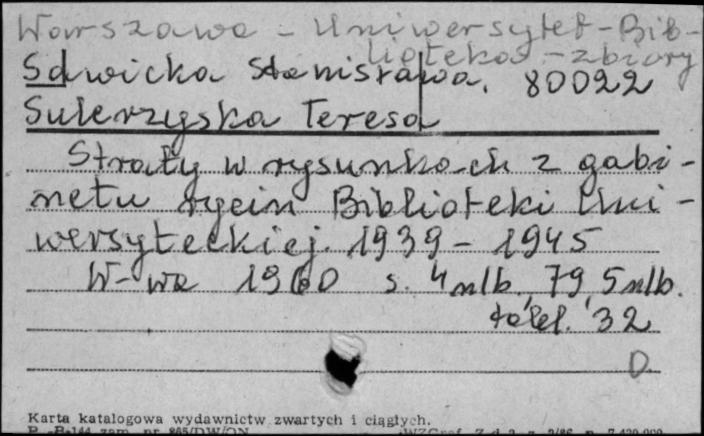 Warszawa - Uniwersytet - Bib-
lioteka - zbiory
Sawicka Stanisława. 80022
Sulerzyska Teresa
Straty w rysunkach z gabi-
netu rycin Biblioteki Uni-
wersyteckiej. 1939 - 1945
W-wa 1960 s. 4 nlb, 79, 5 nlb.
tabl. 32
D.
Karta katalogowa wydawnictw zwartych i ciągłych.